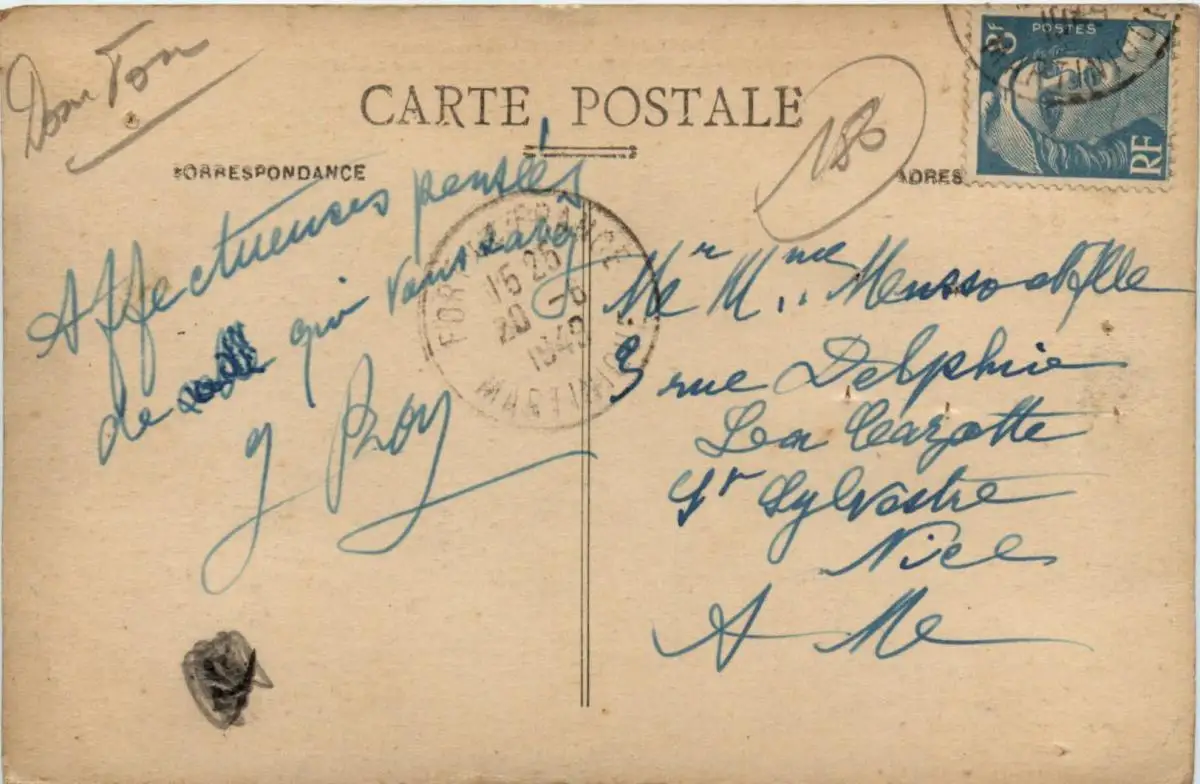 Dom Tom
CARTE POSTALE
180
CORRESPONDANCE
ADRES
8F
POSTES
RF
Affectueuses pensées
de qui vous
y Roy
FORT DE FRANCE
15 25
20 -6
1949
MARTINIQUE
Mr Mme Mensso et Mlle
3 rue Delphie
La Cazotte
St Sylvestre
Nice
A Me